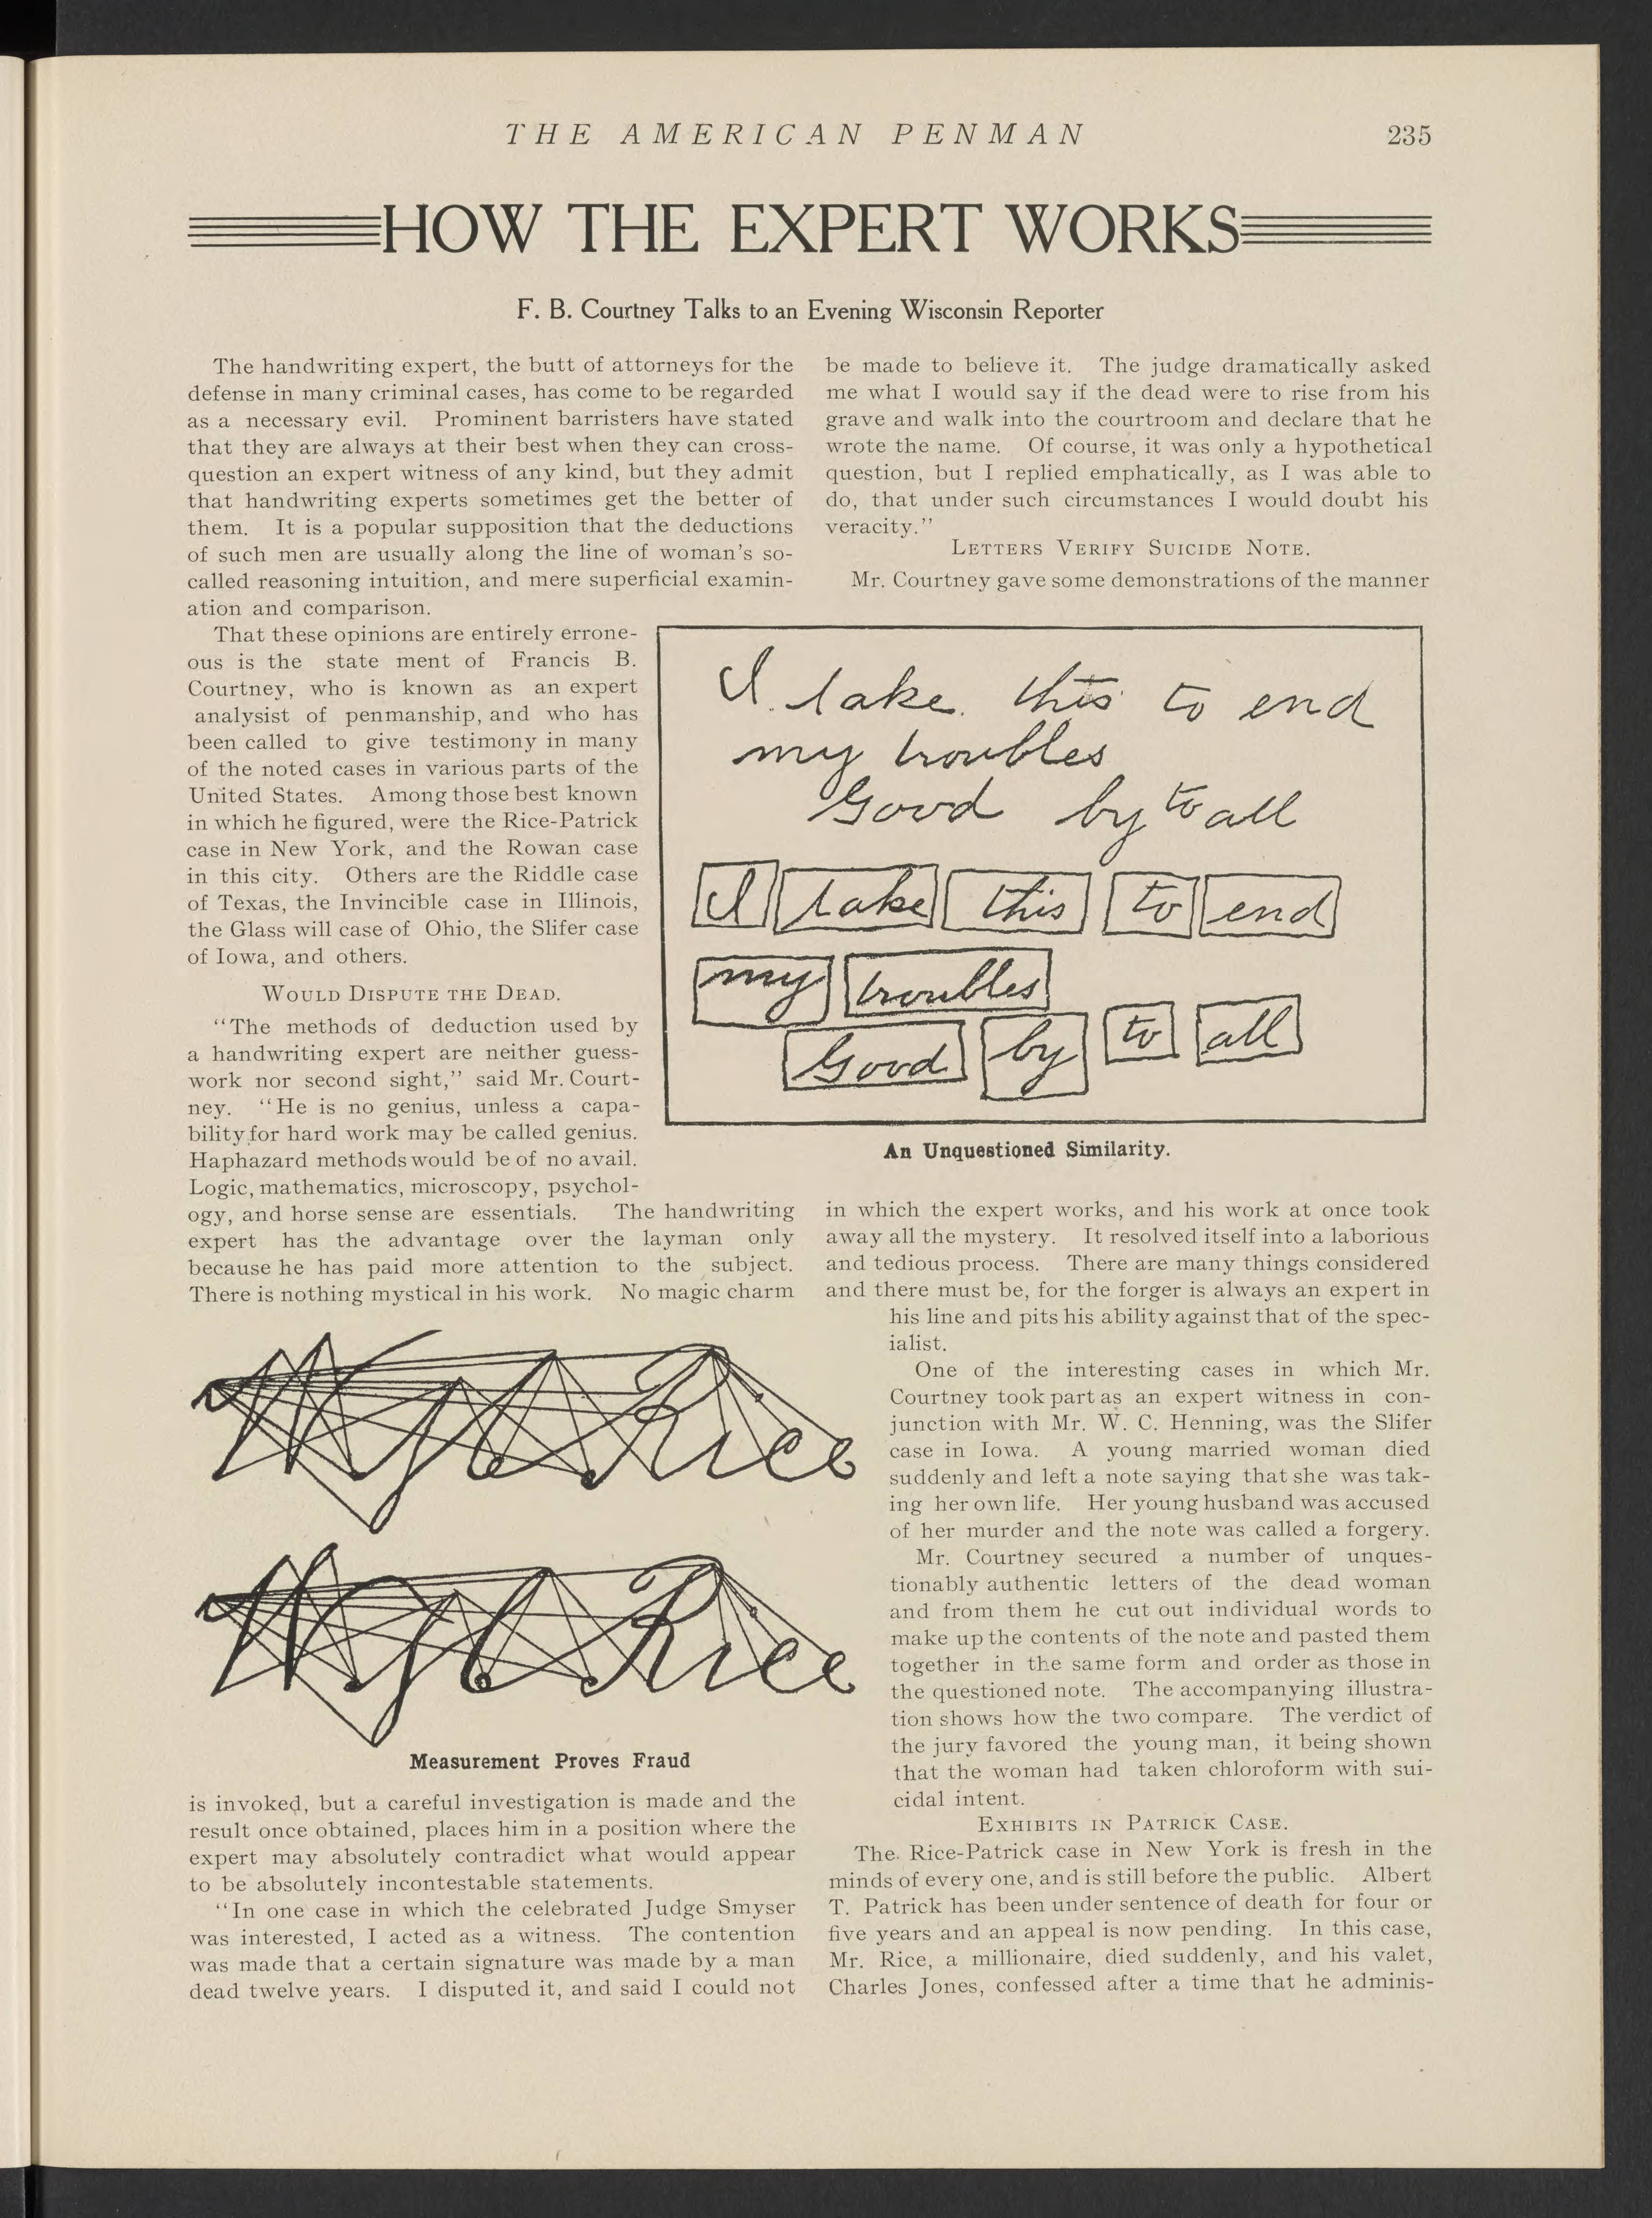 THE AMERICAN PENMAN 235
HOW THE EXPERT WORKS
F. B. Courtney Talks to an Evening Wisconsin Reporter
The handwriting expert, the butt of attorneys for the
defense in many criminal cases, has come to be regarded
as a necessary evil. Prominent barristers have stated
that they are always at their best when they can cross-
question an expert witness of any kind, but they admit
that handwriting experts sometimes get the better of
them. It is a popular supposition that the deductions
of such men are usually along the line of woman's so-
called reasoning intuition, and mere superficial examin-
ation and comparison.
That these opinions are entirely errone-
ous is the state ment of Francis B.
Courtney, who is known as an expert
analysist of penmanship, and who has
been called to give testimony in many
of the noted cases in various parts of the
United States. Among those best known
in which he figured, were the Rice-Patrick
case in New York, and the Rowan case
in this city. Others are the Riddle case
of Texas, the Invincible case in Illinois,
the Glass will case of Ohio, the Slifer case
of Iowa, and others.
WOULD DISPUTE THE DEAD.
"The methods of deduction used by
a handwriting expert are neither guess-
work nor second sight," said Mr. Court-
ney. "He is no genius, unless a capa-
bility for hard work may be called genius.
Haphazard methods would be of no avail.
Logic, mathematics, microscopy, psychol-
ogy, and horse sense are essentials. The handwriting
expert has the advantage over the layman only
because he has paid more attention to the subject.
There is nothing mystical in his work. No magic charm
W M Rice
W M Rice
Measurement Proves Fraud
is invoked, but a careful investigation is made and the
result once obtained, places him in a position where the
expert may absolutely contradict what would appear
to be absolutely incontestable statements.
"In one case in which the celebrated Judge Smyser
was interested, I acted as a witness. The contention
was made that a certain signature was made by a man
dead twelve years. I disputed it, and said I could not
be made to believe it. The judge dramatically asked
me what I would say if the dead were to rise from his
grave and walk into the courtroom and declare that he
wrote the name. Of course, it was only a hypothetical
question, but I replied emphatically, as I was able to
do, that under such circumstances I would doubt his
veracity."
LETTERS VERIFY SUICIDE NOTE.
Mr. Courtney gave some demonstrations of the manner
I take this to end
my troubles
Good by to all
I take this to end
my troubles
Good by to all
An Unquestioned Similarity.
in which the expert works, and his work at once took
away all the mystery. It resolved itself into a laborious
and tedious process. There are many things considered
and there must be, for the forger is always an expert in
his line and pits his ability against that of the spec-
ialist.
One of the interesting cases in which Mr.
Courtney took part as an expert witness in con-
junction with Mr. W. C. Henning, was the Slifer
case in Iowa. A young married woman died
suddenly and left a note saying that she was tak-
ing her own life. Her young husband was accused
of her murder and the note was called a forgery.
Mr. Courtney secured a number of unques-
tionably authentic letters of the dead woman
and from them he cut out individual words to
make up the contents of the note and pasted them
together in the same form and order as those in
the questioned note. The accompanying illustra-
tion shows how the two compare. The verdict of
the jury favored the young man, it being shown
that the woman had taken chloroform with sui-
cidal intent.
EXHIBITS IN PATRICK CASE.
The Rice-Patrick case in New York is fresh in the
minds of every one, and is still before the public. Albert
T. Patrick has been under sentence of death for four or
five years and an appeal is now pending. In this case,
Mr. Rice, a millionaire, died suddenly, and his valet,
Charles Jones, confessed after a time that he adminis-